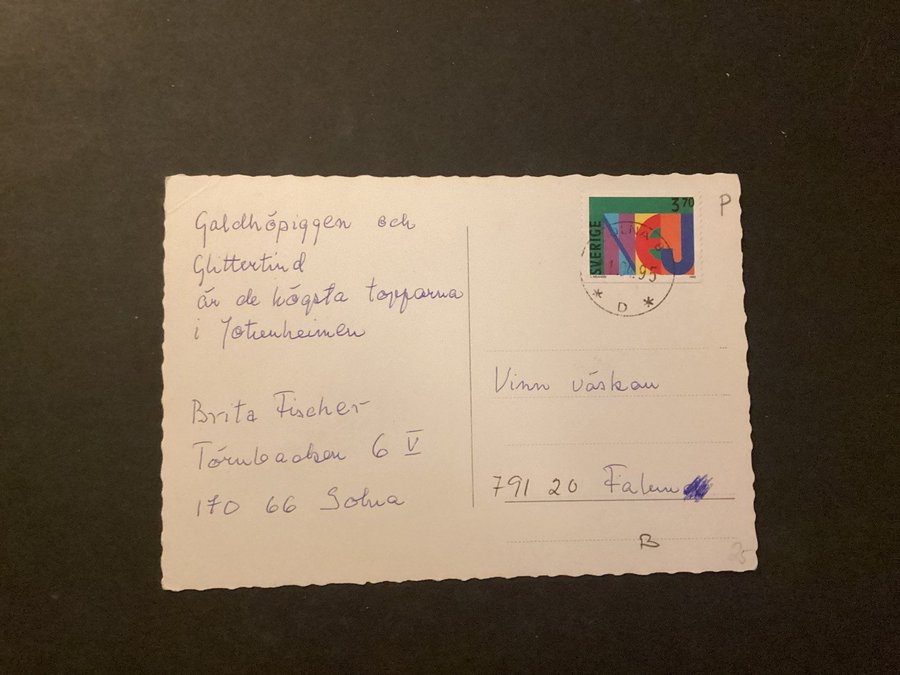 Galdhöpiggen och
Glittertind
är de högsta topparna
i Jotunheimen
Brita Fischer
Törnbacken 6 V
170 66 Solna
SVERIGE
3 70
NEJ
SOLNA
95
* D *
P
Vinn väskan
791 20 Falun
B
25